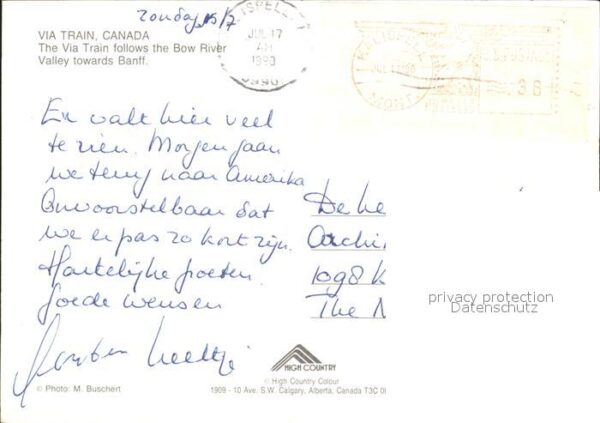 zondag 15/7
VIA TRAIN, CANADA
The Via Train follows the Bow River
Valley towards Banff.
JUL 17
AM
1990
MONT
38
En valt hier veel
te zien. Morgen gaan
we terug naar Amerika
Onvoorstelbaar dat
we er pas zo kort zijn.
Hartelijke groeten.
Goede wensen
De he
Archi
1098 K
The N
privacy protection
Datenschutz
HIGH COUNTRY
© High Country Colour
1909 - 10 Ave. S.W. Calgary, Alberta, Canada T3C 0
© Photo: M. Buschert